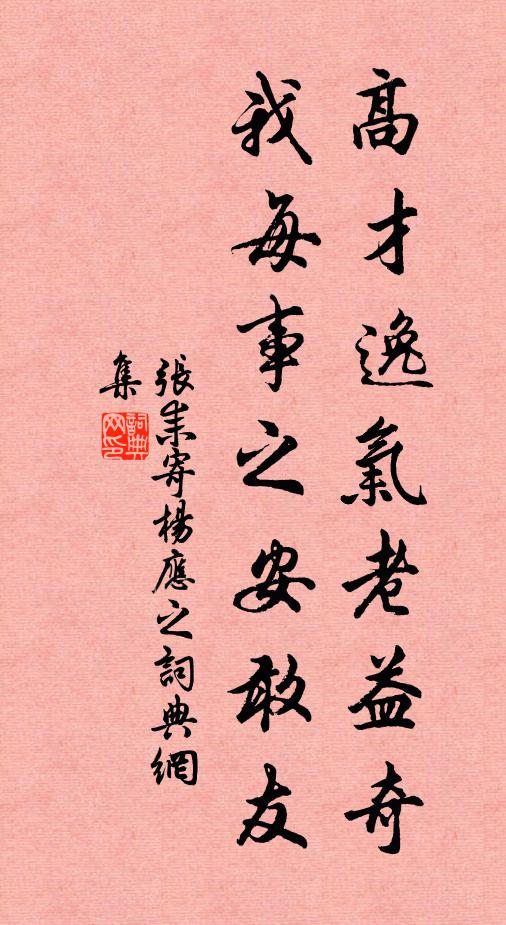 高才逸氣老益奇
我每事之安敢友
張耒寄楊應之詞典網
集
詞典網印